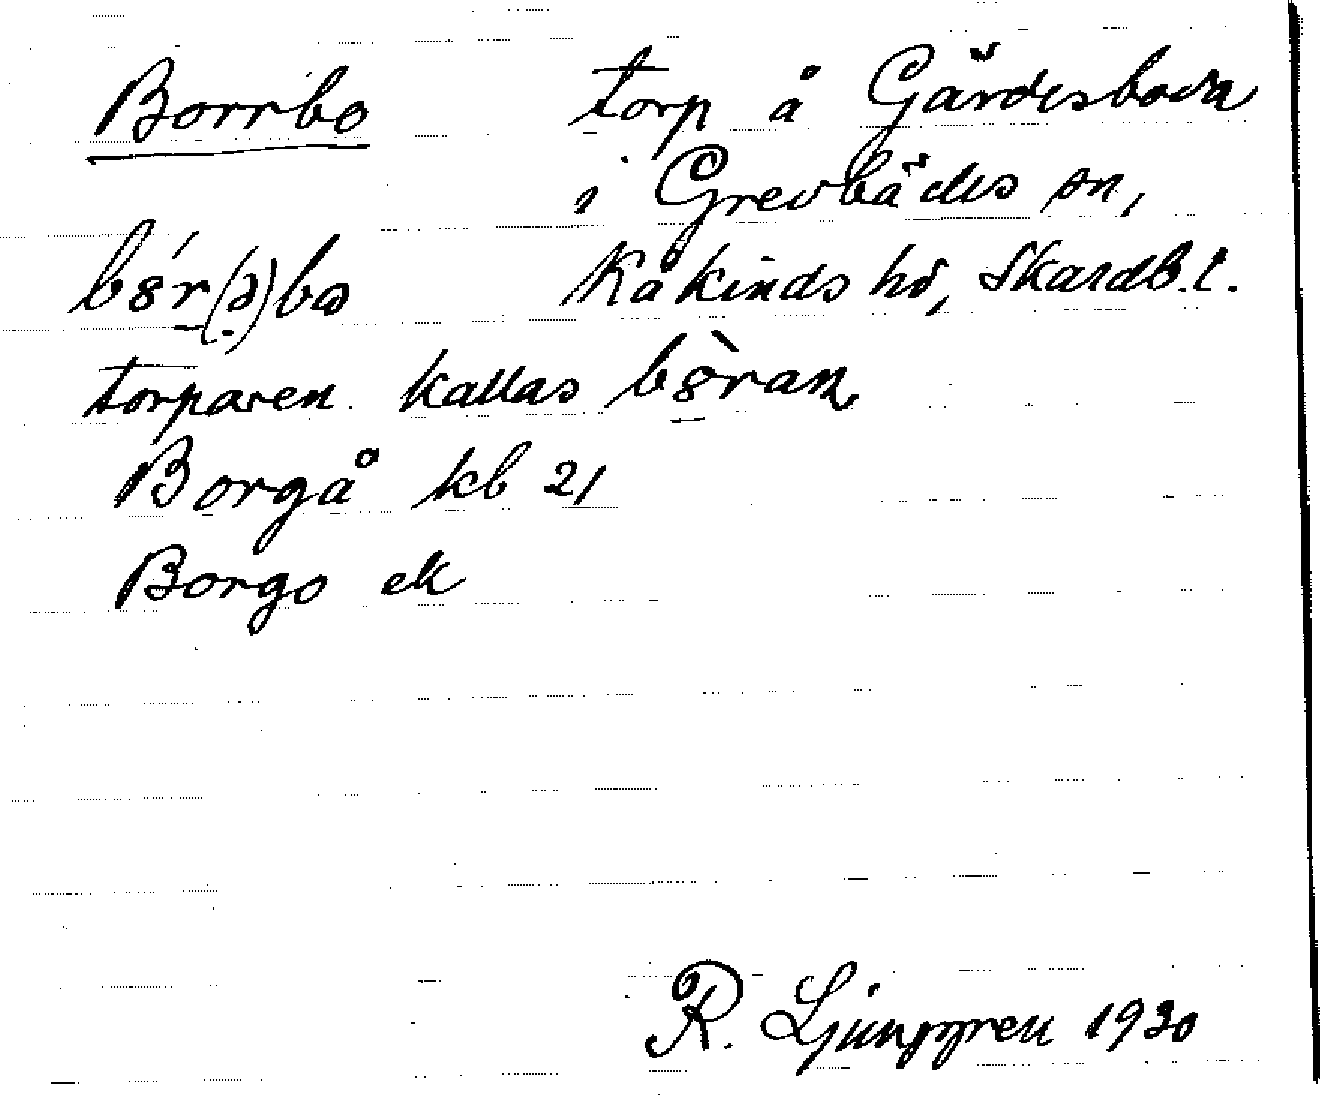 Borrbo torp å Gärdesboda
i Grevbäcks sn,
bór(ə)bo Kåkinds hd, Skarab.l.
torparen kallas bòran
Borgå kb 21
Borgo ek
R. Ljunggren 1930